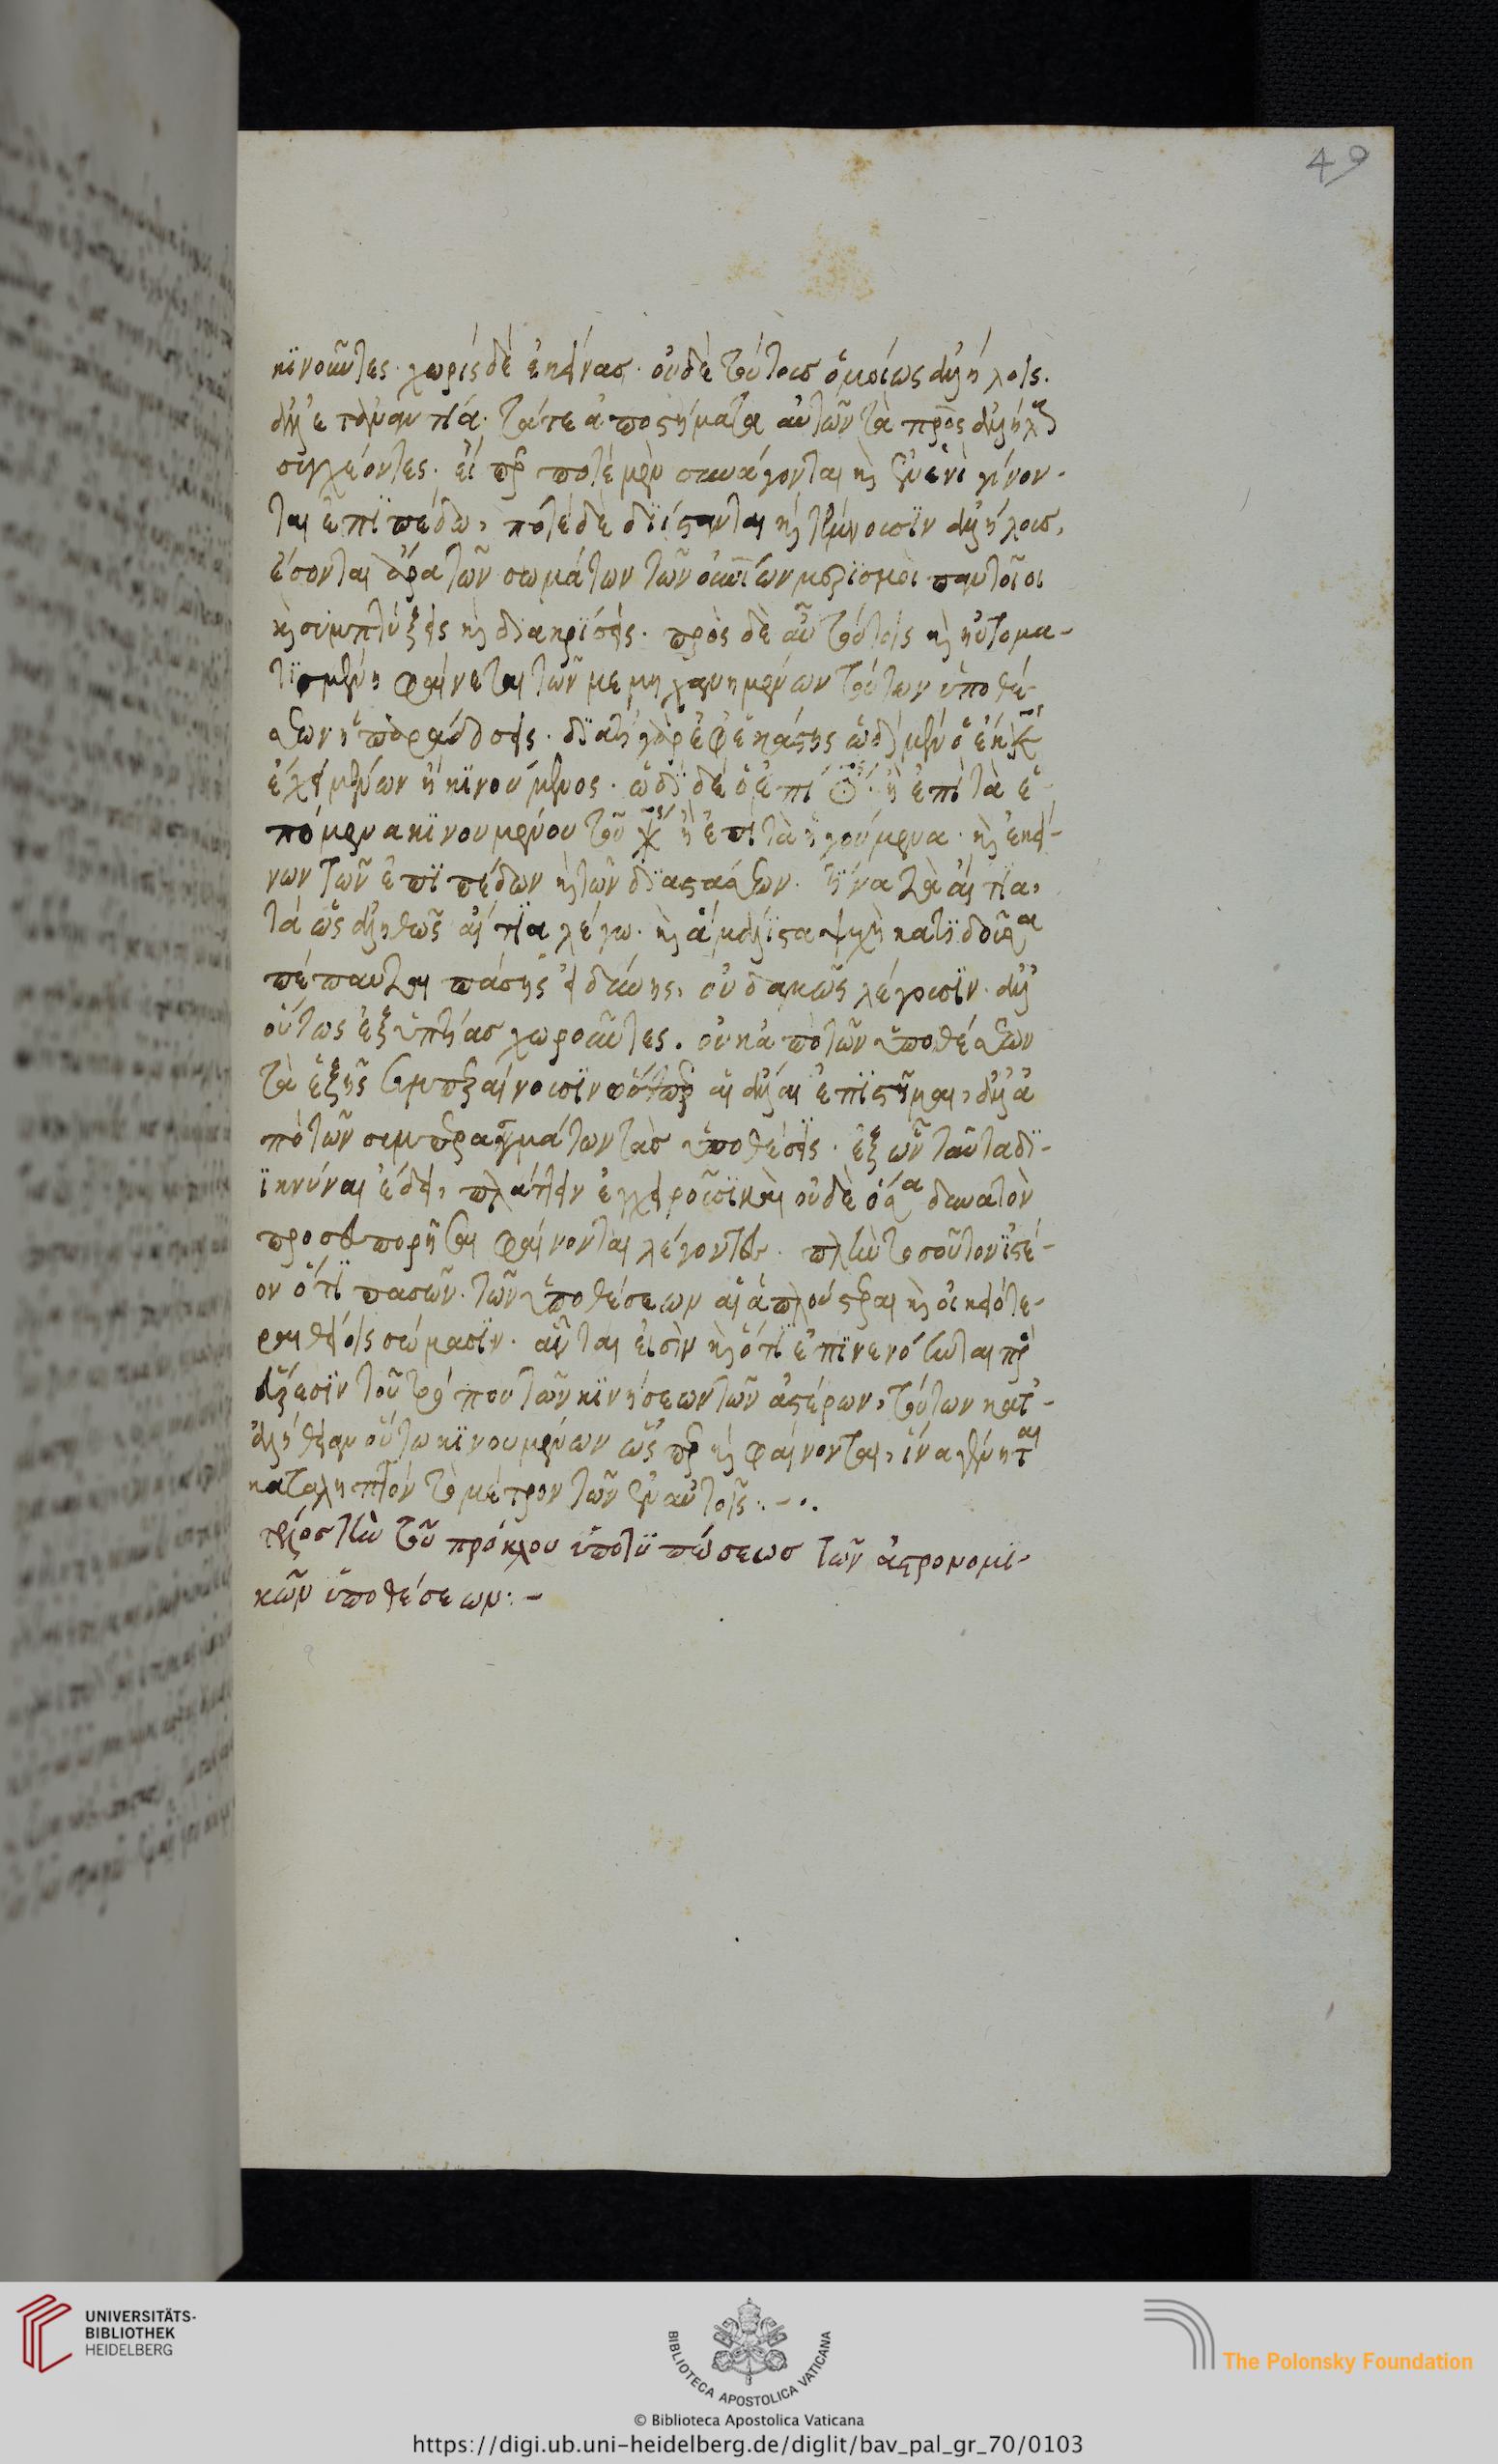 49
κϊνοῦντες· χωρὶς δὲ ἐκείνασ· οὐδὲ τούτοισ ὁμοίως ἀλλήλοις.
ἀλλ' ἐτοὐναντία· τάτε ἀποστήματα αὐτῶν τὰ πρὸς ἀλλήλας
συγχέοντες· εἴπερ ποτὲ μὲν συνάγονται καὶ ἐν ἑνὶ γίνον-
ται ἐπϊπέδω, ποτὲ δὲ διΐστανται καὶ τέμνουσϊν ἀλλήλουσ,
ἔσονται ἄρα τῶν σωμάτων τῶν οὐρανίων μερϊσμοὶ παντοῖοι
καὶ συμπτύξεις καὶ διακρίσεις. πρὸς δὲ αὖ τούτοις καὶ ηὐτομα-
τϊσμένη φαίνεται τῶν μεμηχανημένων τούτων ὑποθέ-
σεων ἡ παράδοσις. διατί γὰρ ἐφ' ἑκάστης ὡδὶ μὲν ὁ ἔκκ
ἐχόμενον ἢ κϊνούμενος. ὡδὶ δὲ ὁ ἐπίκυκλος ἢ ἐπὶ τὰ ἑ-
πόμενα κϊνουμένου τοῦ ἀστέρος ἢ ἐπὶ τὰ ἡγούμενα. καὶ ἐκεί-
νων τῶν ἐπϊπέδων καὶ τῶν διαστάσεων. τίνα τὰ αἴτϊα,
τὰ ὡς ἀληθῶς αἴτϊα λέγω. καὶ ἃ μάλϊστα ψυχὴ κατϊδοῦσα
πέπαυται πάσης ὠδῖνος, οὐδαμῶς λέγουσϊν. ἀλλ'
οὕτως ἐξ ὑπτίασ χωροῦντες. οὐκ ἀπὸ τῶν ὑποθέσεων
τὰ ἑξῆς συμπεραίνουσϊν ὥσπερ αἱ ἄλλαι ἐπϊστῆμαι, ἀλλ' ἀ
πὸ τῶν συμπερασμάτων τὰσ ὑποθέσεις. ἐξ ὧν ταῦτα δεϊ-
ϊκνύναι ἔδει, πλάττειν ἐγχειροῦσϊ καὶ οὐδὲ ὅσα δυνατὸν
προσευπορῆσαι φαίνονται λέγοντες. πλὴν τοσοῦτον ϊστέ-
ον ὅτϊ πασῶν τῶν ὑποθέσεων αἱ ἁπλούστεραι καὶ οἰκειότε-
ραι θείοις σώμασϊν. αὗται εἰσὶν καὶ ὅτϊ ἐπϊνενόηνται πρὸς
εὕρεσϊν τοῦ τρόπου τῶν κϊνήσεων τῶν ἀστέρων, τούτων κατ' -
ἀλήθειαν οὕτω κϊνουμένων ὥσπερ καὶ φαίνονται, ἵνα γένηται
καταληπτὸν τὸ μέτρον τῶν ἐν αὐτοῖς:-.
τέλος τῆς τοῦ πρόκλου ὑποτϋπώσεωσ τῶν ἀστρονομϊ-
κῶν ὑποθέσεων:-
UNIVERSITÄTS-
BIBLIOTHEK
HEIDELBERG
BIBLIOTECA APOSTOLICA VATICANA
The Polonsky Foundation
© Biblioteca Apostolica Vaticana
https://digi.ub.uni-heidelberg.de/diglit/bav_pal_gr_70/0103